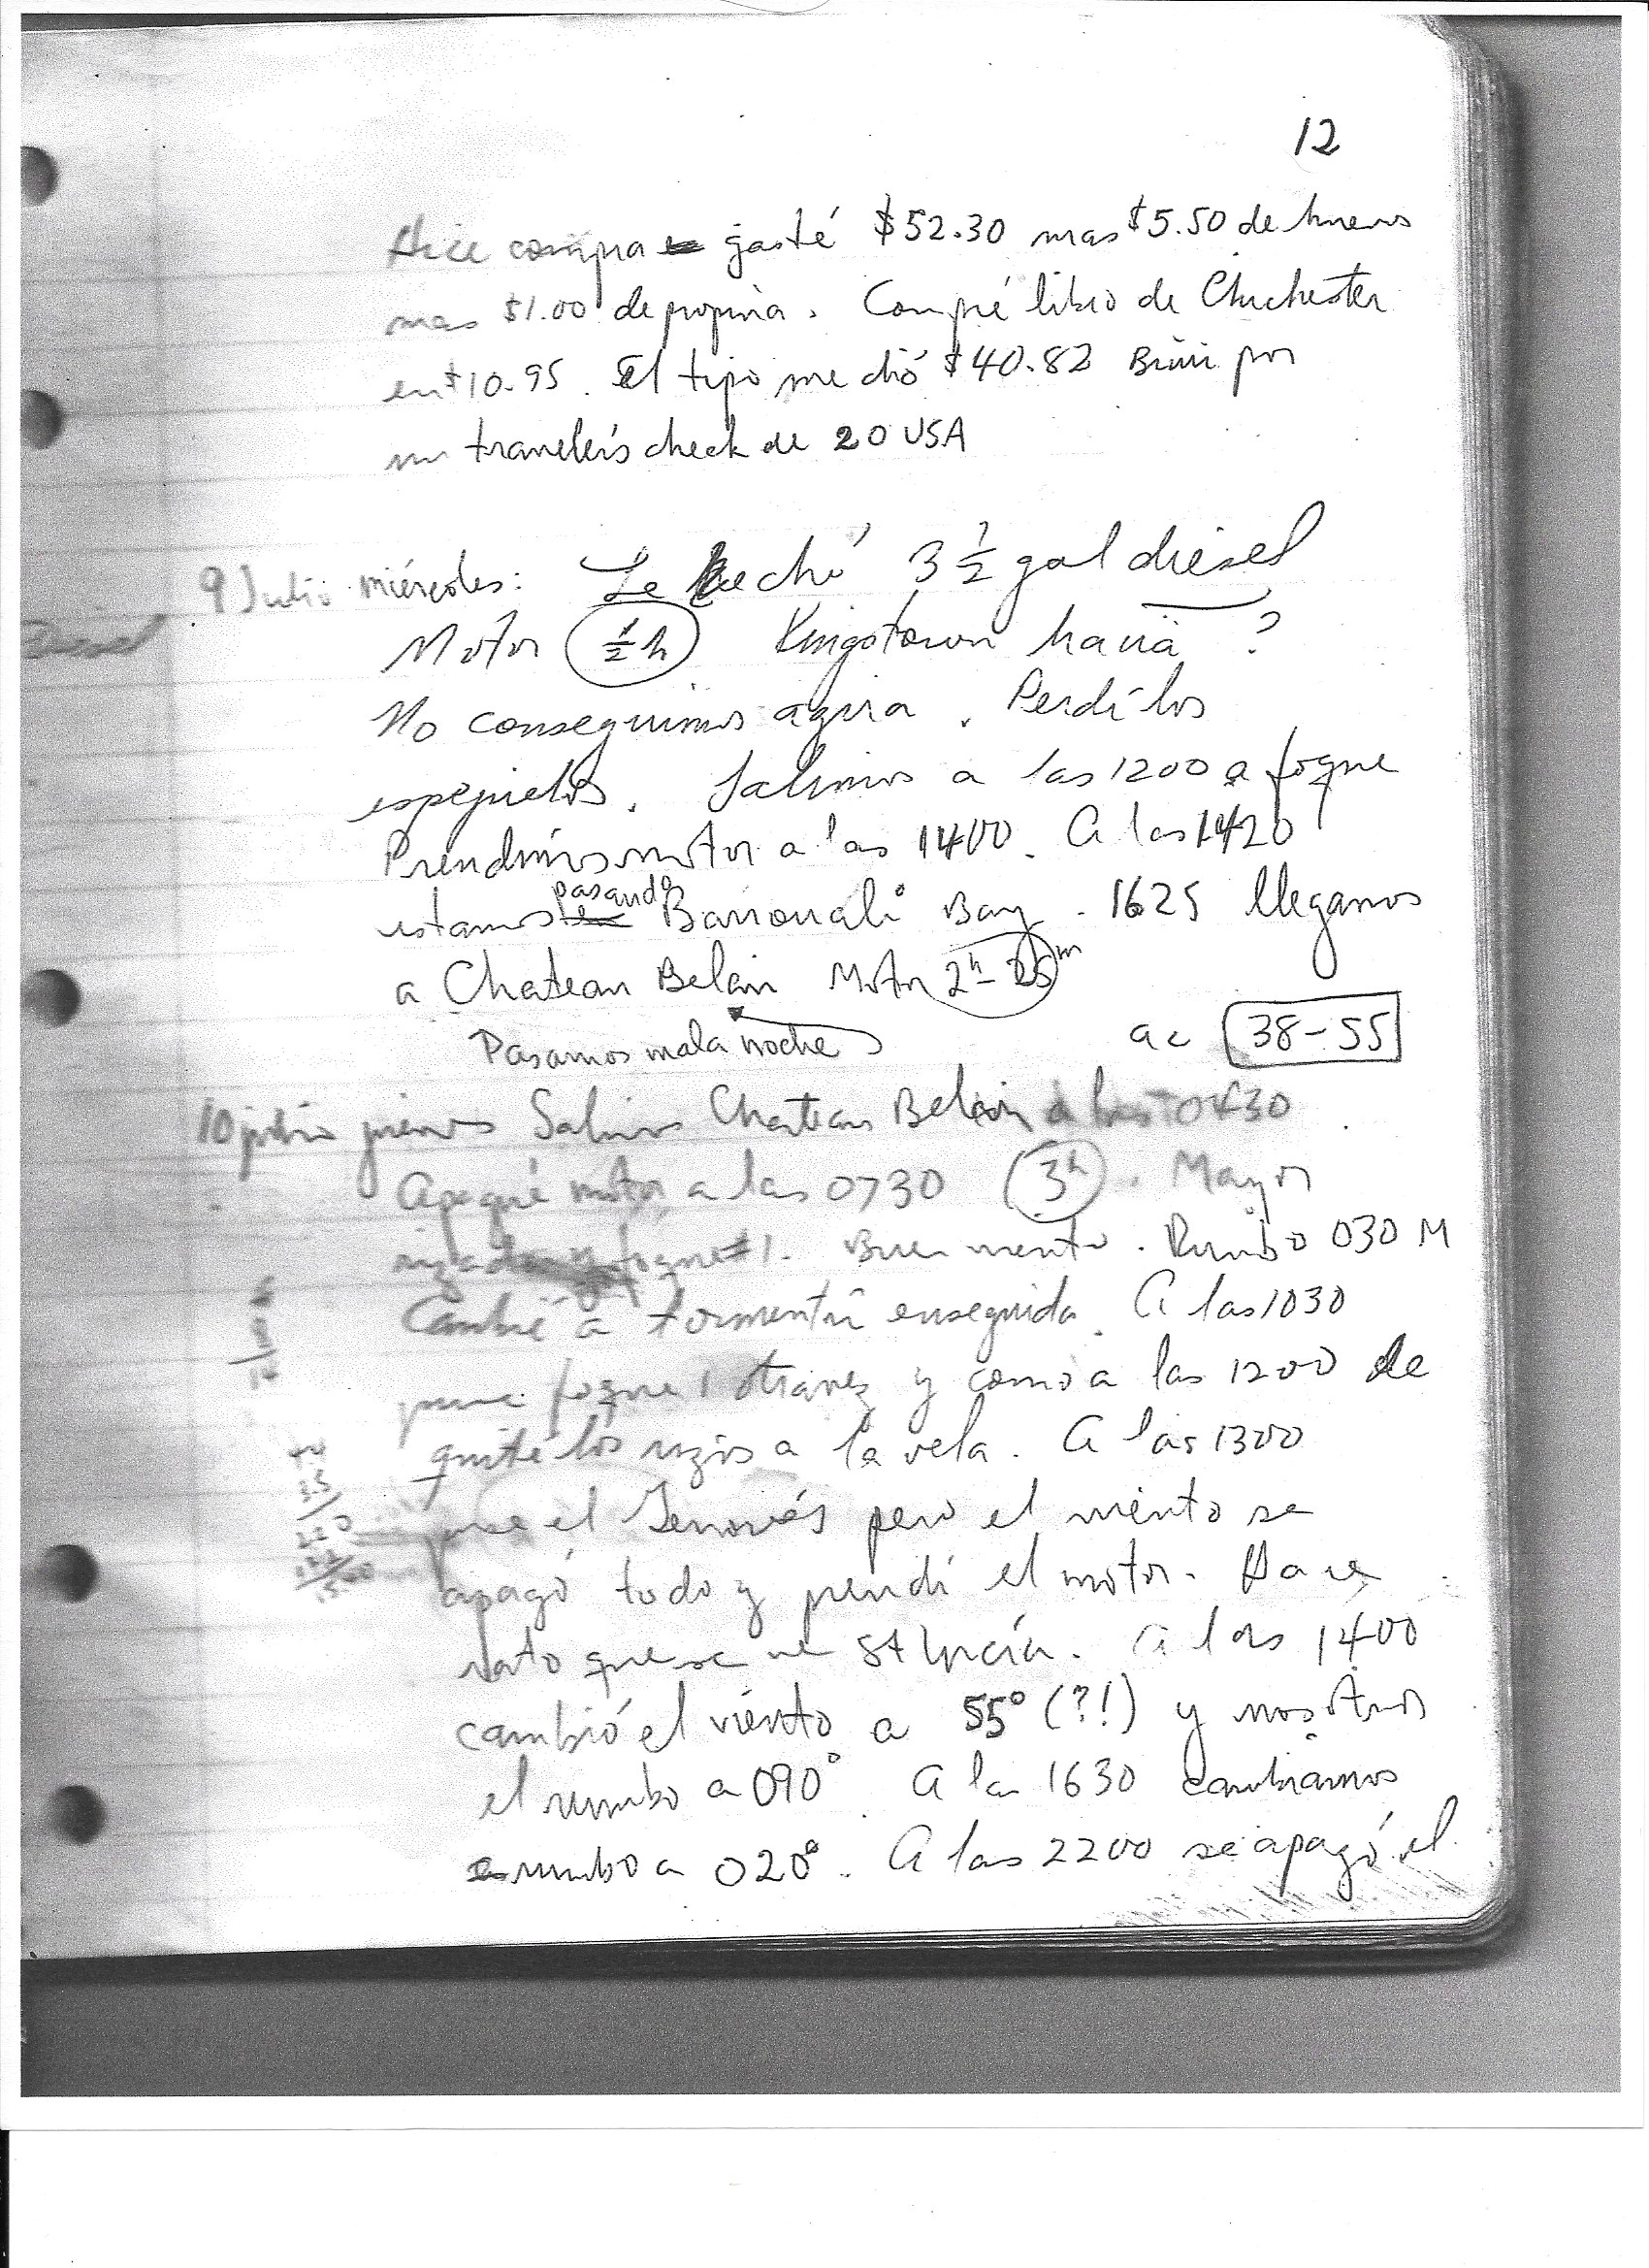 12
Hice compra gasté $52.30 mas $5.50 de huevos
mas $1.00 de propina. Compré libro de Chichester
en $10.95. El tipo me dió $40.82 por
un traveler's check de 20 USA
9 Julio miércoles: Le eché 3 1/2 gal diesel
Diesel
Motor 1/2 h Kingstown havia ?
No conseguimos agua. Perdí los
espejuelos. Salimos a las 1200 a foque
Prendimos motor a las 1400. A las 1420
estamos pasando Barrouali Bay. 1625 llegamos
a Chateau Belair Motor 2h-25m
Pasamos mala noche
ac 38-55
10 julio jueves Salimos Chateau Belair a las 0430
Apagué motor a las 0730 3h. Mayor
rizada y foque #1. Buen viento. Rumbo 030 M
Cambié a tormentín enseguida. A las 1030
puse foque 1 otra vez y como a las 1200 le
quité los rizos a la vela. A las 1300
puse el Genovés pero el viento se
apagó todo y prendí el motor. Hace
rato que se ve St Lucía. A las 1400
cambió el viento a 55° (?!) y nosotros
el rumbo a 090°. A las 1630 cambiamos
rumbo a 020°. A las 2200 se apagó el